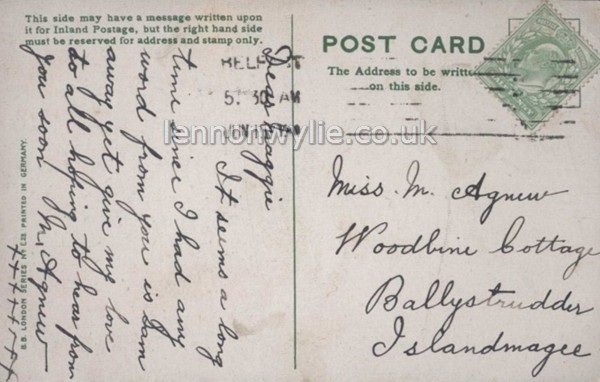 This side may have a message written upon
it for Inland Postage, but the right hand side
must be reserved for address and stamp only.
POST CARD
The Address to be written
on this side.
BELFAST
5. 30 AM
lennonwylie.co.uk
Dear Maggie
It seems a long
time since I had any
word from you is Sam
away yet give my love
to all hoping to hear from
you soon M. Agnew
Miss. M. Agnew
Woodbine Cottage
Ballystrudder
Islandmagee
B.B. LONDON SERIES PRINTED IN GERMANY.